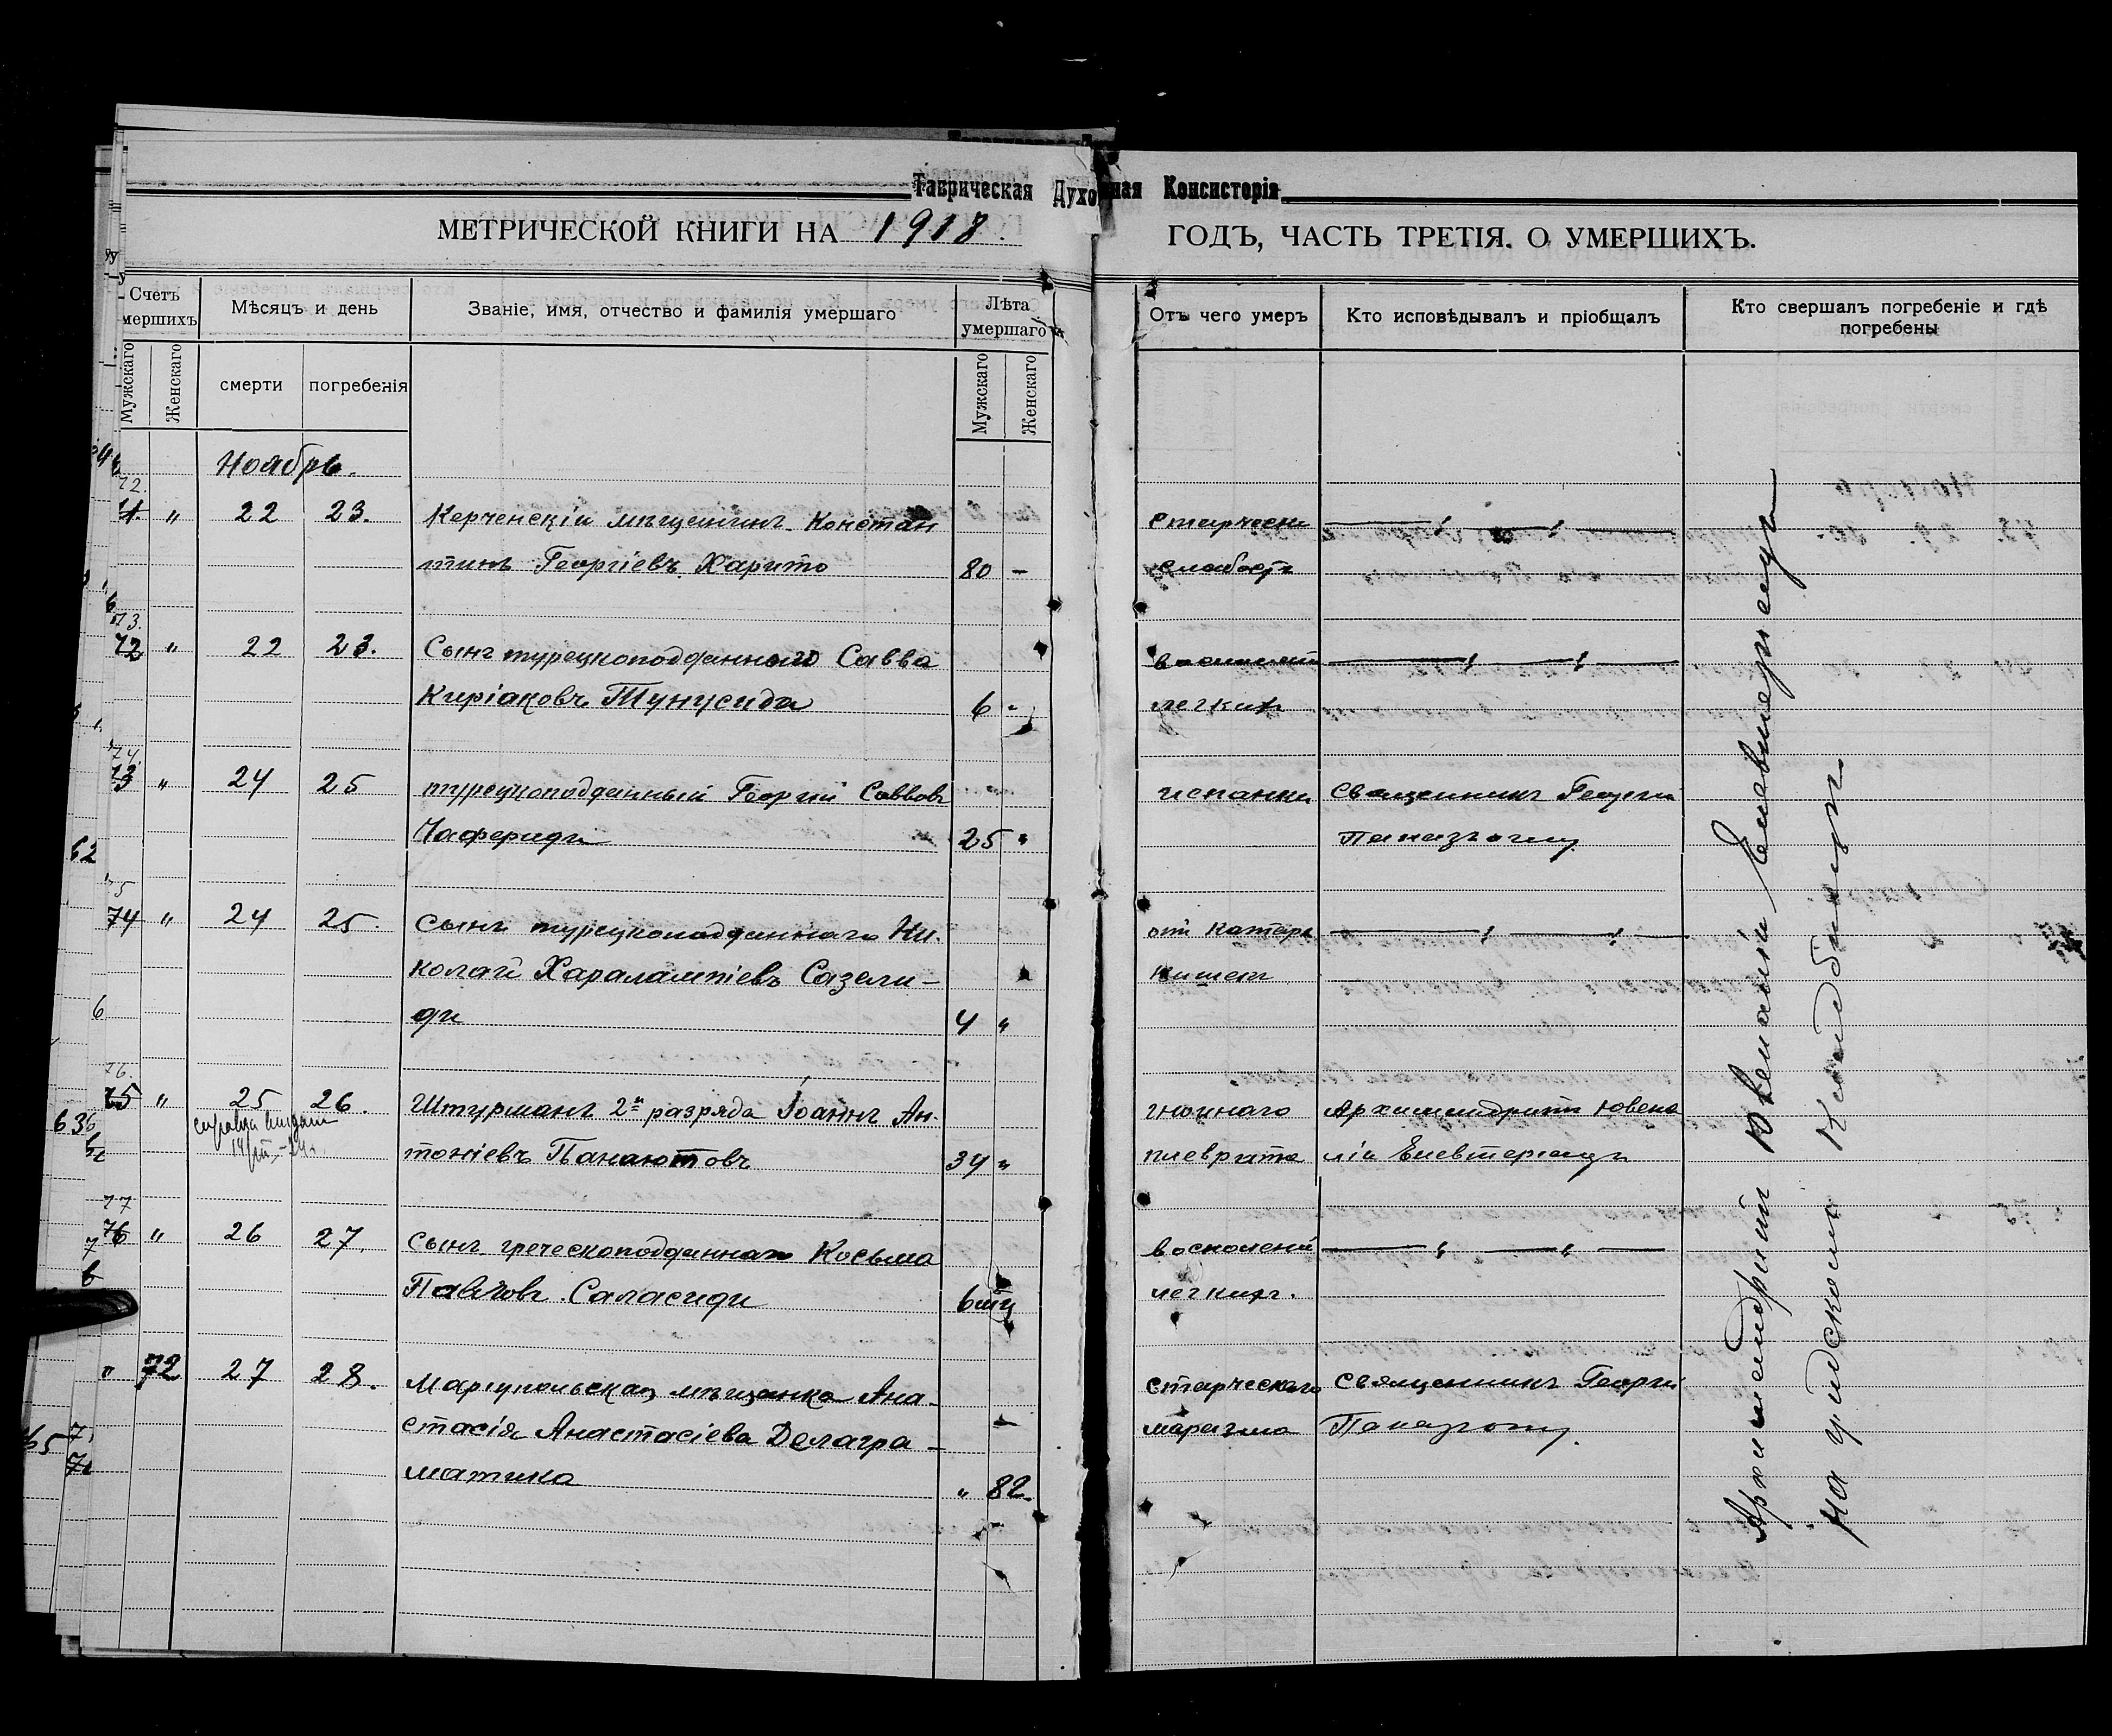 Таврическая Духовная Консисторія
МЕТРИЧЕСКОЙ КНИГИ НА 1918 ГОДЪ, ЧАСТЬ ТРЕТІЯ. О УМЕРШИХЪ.
Счетъ умершихъ
Мѣсяцъ и день
Званіе, имя, отчество и фамилія умершаго
Лѣта умершаго
Отъ чего умеръ
Кто исповѣдывалъ и пріобщалъ
Кто свершалъ погребеніе и гдѣ погребены
Мужскаго
Женскаго
смерти
погребенія
Мужскаго
Женскаго
Ноябрь.
72.
71. " 22 23. Керченскій мѣщанинъ Констан старческ
тинъ Георгіевъ Харито 80 - слабость
73.
72 " 22 23. Сынъ турецкоподданнаго Савва воспален
Киріаковъ Тунусида 6 - легкихъ
74.
73 " 24 25 турецкоподданный Георгій Саввовъ испанки Священникъ Георгій
Чафериди 25 "
75
74 " 24 25. Сынъ турецкоподданнаго Ни- отъ катара
колай Харалампіевъ Сазели- кишекъ
ди 4 "
76.
75 " 25 26. Штурманъ 2го разряда Іоаннъ Ан- гнойнаго Архимандритъ Ювена
справка выдана
тоніевъ Панаютовъ 34 " плеврита лій Елевтеріади
77
76 " 26 27. Сынъ греческоподданнаго Косьма воспаленія
Павловъ Саласиди 6 м легкихъ.
" 72 27 28. Маріупольская мѣщанка Ана- старческаго Священникъ Георгій
стасія Анастасіева Делагра- маразма
матика " 82.
Архимандритъ Ювеналій Елевтеріади
на градскомъ кладбищѣ.